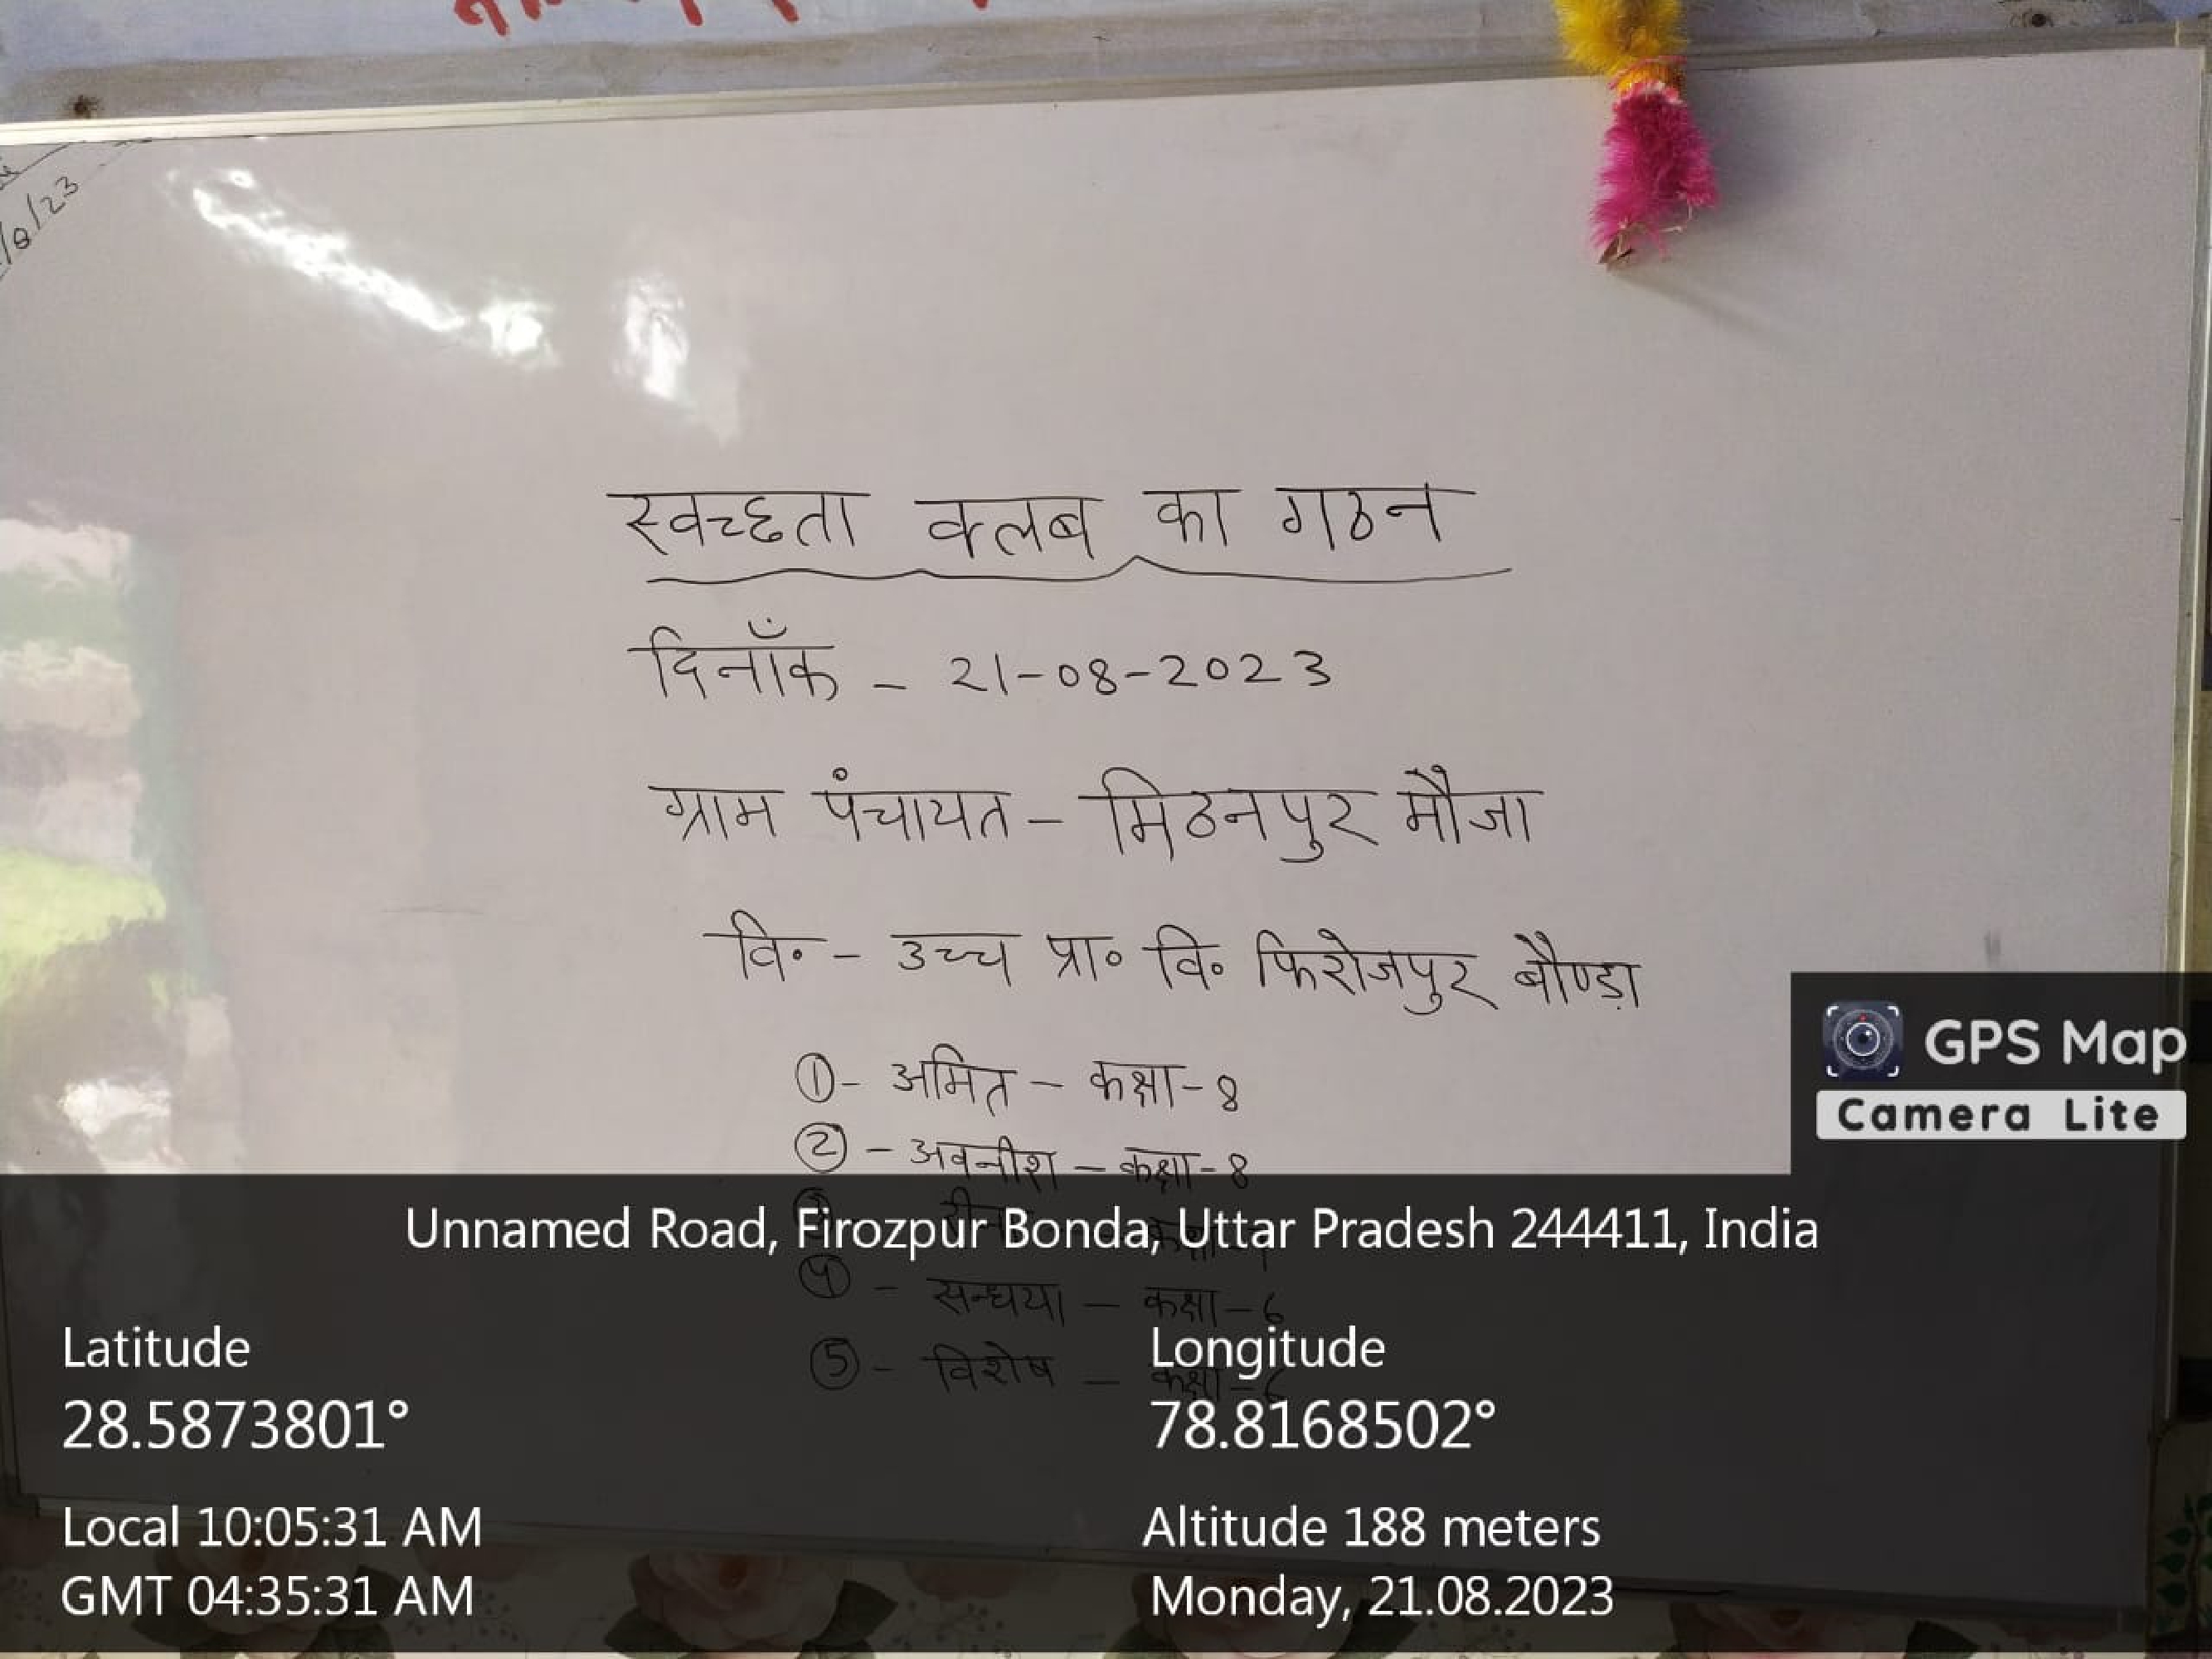 /8/23
स्वच्छता क्लब का गठन
दिनाँक - 21-08-2023
ग्राम पंचायत - मिठनपुर मौजा
वि॰ - उच्च प्रा॰ वि॰ फिरोजपुर बौण्डा
① - अमित - कक्षा - 8
② - अवनीश - कक्षा - 8
③ कक्षा - 7
④ - सन्धया - कक्षा - 6
⑤ - विशेष - कक्षा - 6
GPS Map
Camera Lite
Unnamed Road, Firozpur Bonda, Uttar Pradesh 244411, India
Latitude
28.5873801°
Longitude
78.8168502°
Local 10:05:31 AM
GMT 04:35:31 AM
Altitude 188 meters
Monday, 21.08.2023